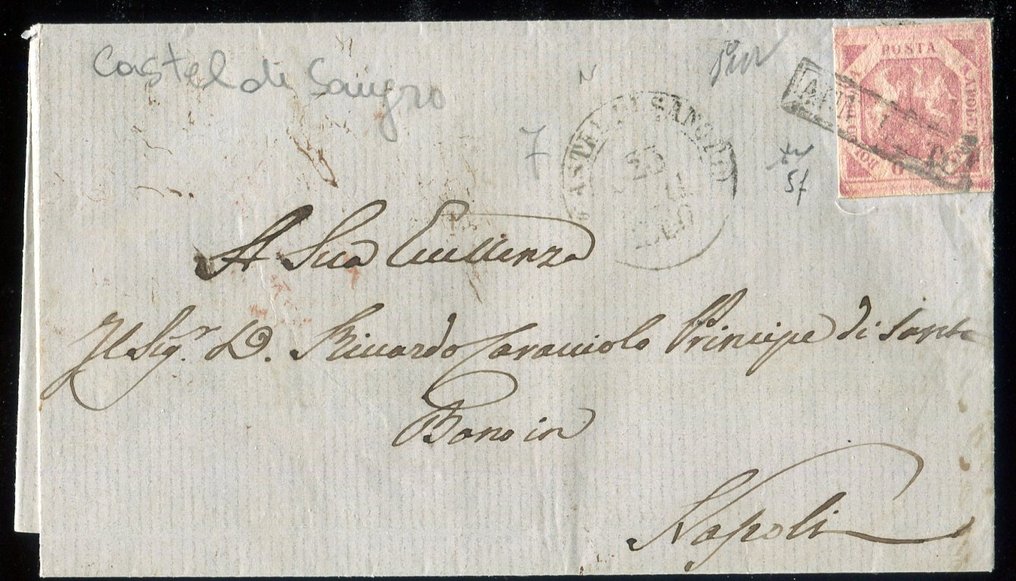 Castel di Sangro
POSTA
CASTEL DI SANGRO
23
7
A Sua Eccellenza
Il Sigr. D. Riccardo Caracciolo Principe di Santo
Bono in
Napoli